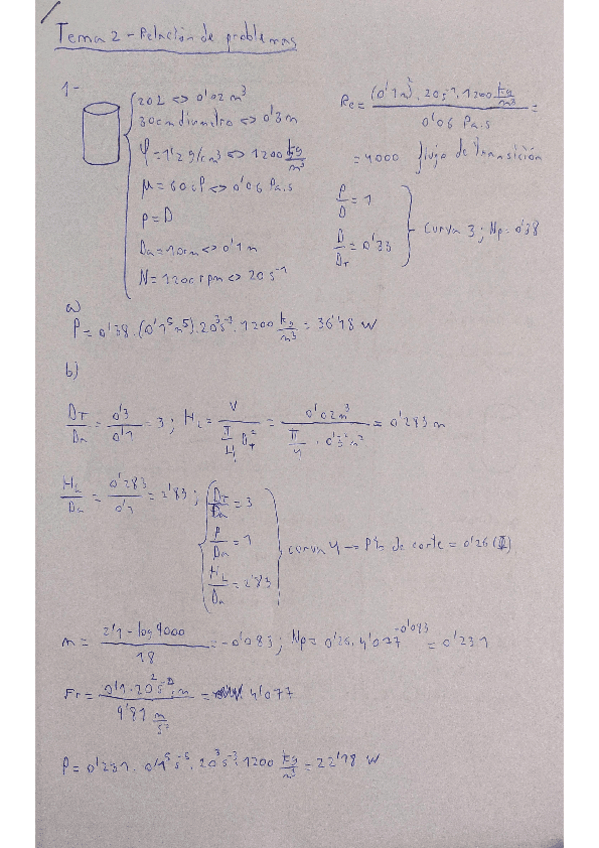 Tema 2 - Relación de problemas
1-
20L <=> 0'02 m³
30cm diametro <=> 0'3 m
φ = 1'2 g/cm³ <=> 1200 kg/m³
μ = 60 cP <=> 0'06 Pa.s
p = D
Da = 10cm <=> 0'1 m
N = 1200 rpm <=> 20 s⁻¹
Re = (0'1m)² · 20s⁻¹ · 1200 kg/m³ / 0'06 Pa.s =
= 4000 flujo de transición
P/D = 1
D/DT = 0'33
curva 3; Np = 0'38
a)
P = 0'38 · (0'1⁵ m⁵) · 20³ s⁻³ · 1200 kg/m³ = 36'48 W
b)
DT/Da = 0'3/0'1 = 3; HL = V / π/4 DT² = 0'02m³ / π/4 · 0'3² m² = 0'283 m
HL/Da = 0'283/0'1 = 2'83;
DT/Da = 3
P/Da = 1
HL/Da = 2'83
curva 4 → Pto de corte = 0'26 (Φ)
m = 2'1 - log 4000 / 18 = -0'083; Np = 0'26 · 4'077^-0'083 = 0'231
Fr = 0'1 · 20² s⁻² · m / 9'81 m/s² = 4'077
P = 0'231 · 0'1⁵ s⁻⁵ · 20³ s⁻³ · 1200 kg/m³ = 22'18 W